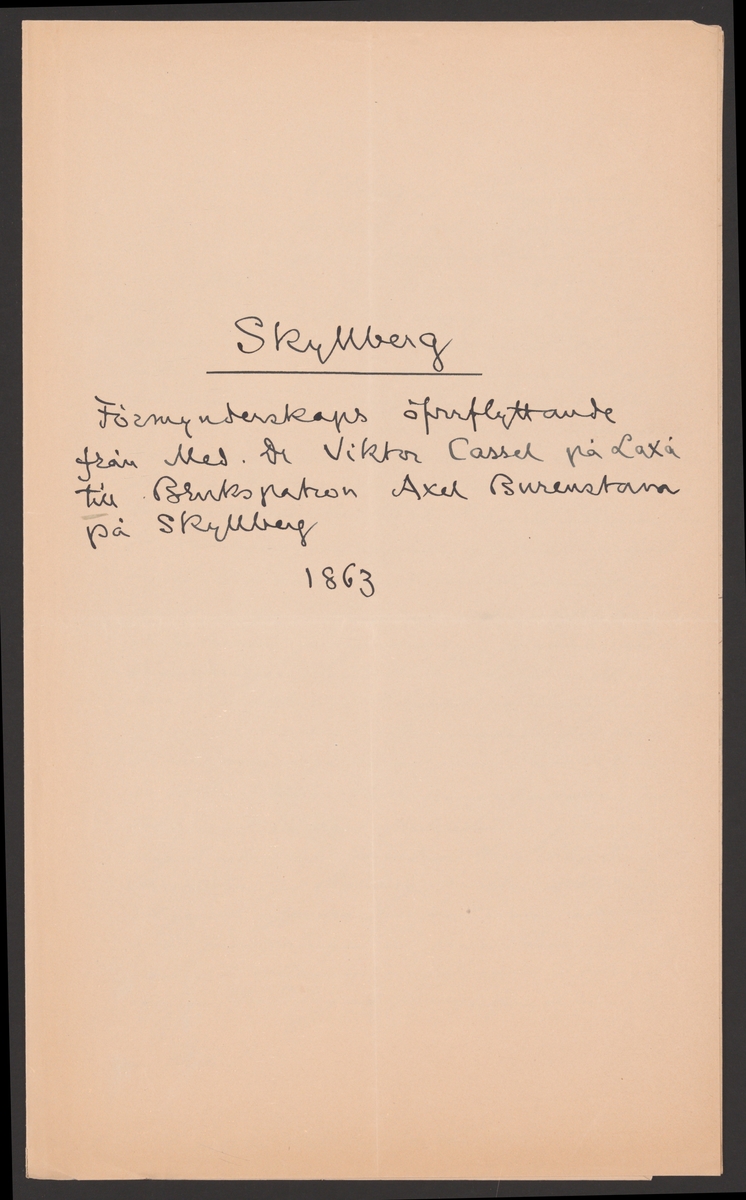 Skyllberg
Förmynderskaps öfverflyttande
från Med. Dr Viktor Cassel på Laxå
till Brukspatron Axel Burenstam
på Skyllberg
1863